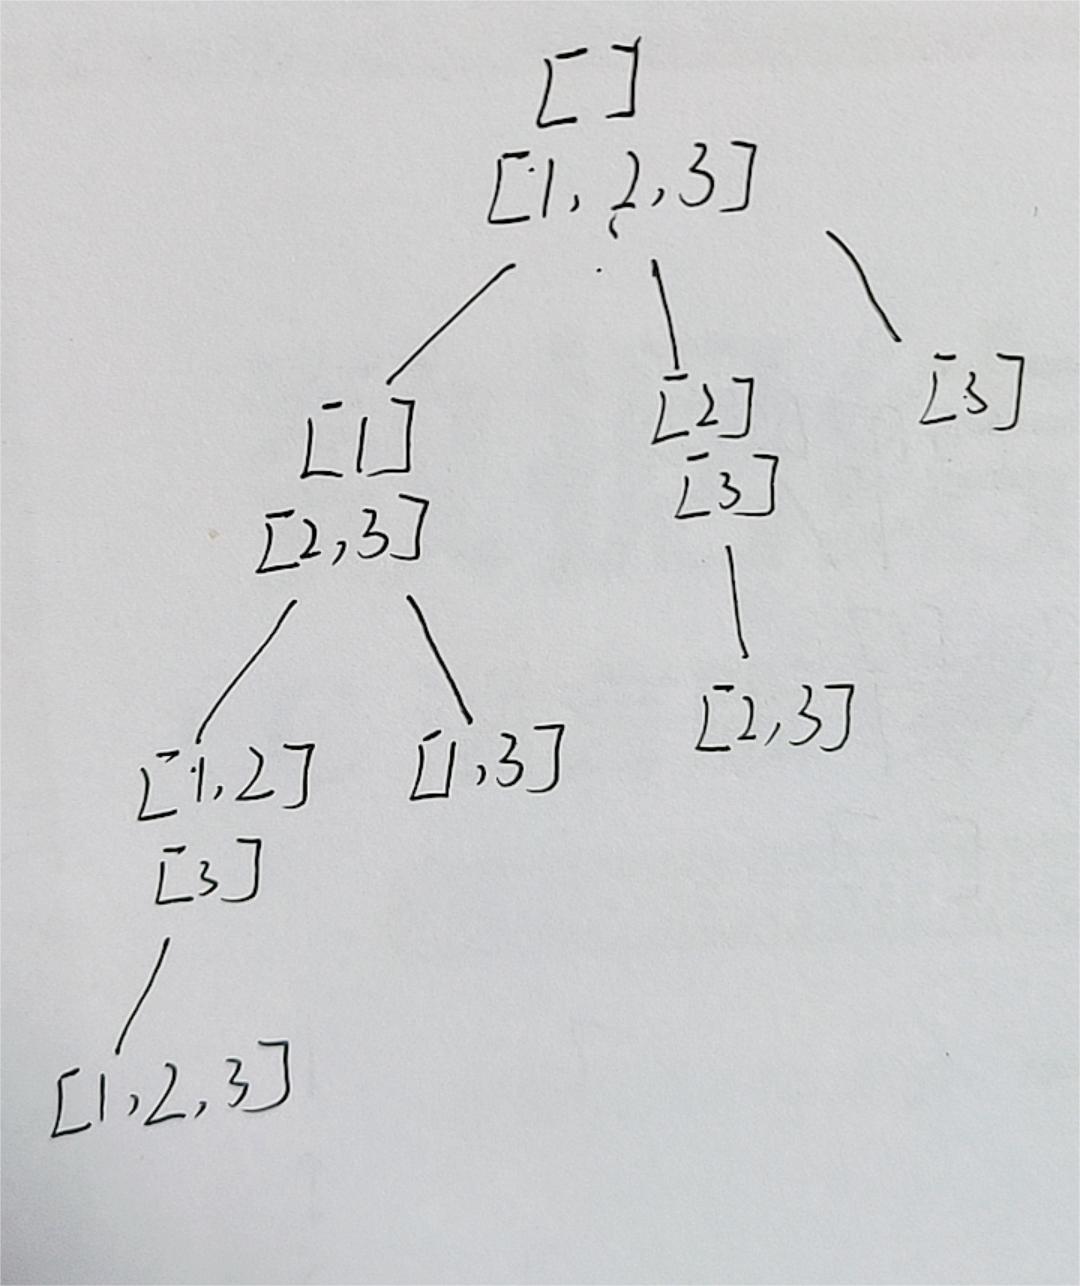 []
[1,2,3]
[1]
[2,3]
[2]
[3]
[3]
[1,2]
[3]
[1,3]
[2,3]
[1,2,3]